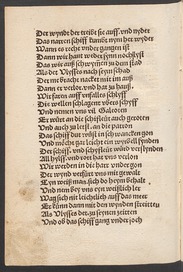 Der wyndt der treibt sie auff vnd nyder
Das narren schiff kumbt nym her wyder
Wann es recht vnder gangen ist
Dann wir hant weder synn noch lyst
Das wir auß schwymmen zů dem stad
Als der Vlysses noch seym schad
Der me bracht nacket mit im auß
Dann er verlor vnd hat zů huß
Wir faren auff vnfalles schlyff
Die wellen schlagent vber schyff
Vnd nemen vns vil Galeoten
Es würt an die schiflüt auch geroten
Vnd auch zů letst an die patron
Das schiff důt vast in schwancken gon
Vnd möcht gar leicht ein wyrbel fynden
Der schiff vnd schyflüt würd verslynden
All hylff vnd rott hat vns verlon
Wir werden in die harr vnder gon
Der wynd verfürt vns mit gewalt
Eyn wiß man sich do heym behalt
Vnd nem by vns eyn wißlich ler
Wag sich nit leichtlich auff das meer
Er künn dann mit den wynden stritten
Als Vlysses det zů seynen zeitten
Vnd ob das schiff gang vnder joch